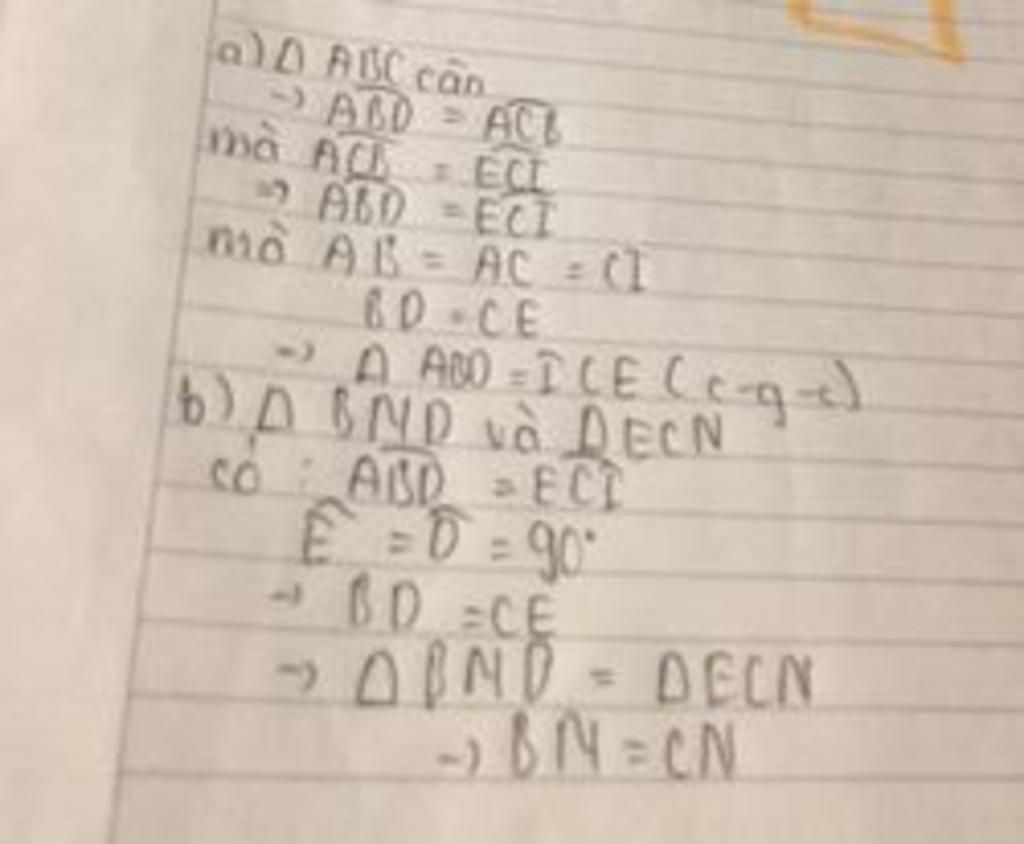 a) Δ ABC cân
→ ABD = ACB
mà ACB = ECI
=> ABD = ECI
mà AB = AC = CI
BD = CE
→ Δ ABD = ICE (c-g-c)
b) Δ BMD và ΔECN
có : ABD = ECI
E = D = 90°
→ BD = CE
→ Δ BMD = ΔECN
→ BM = CN